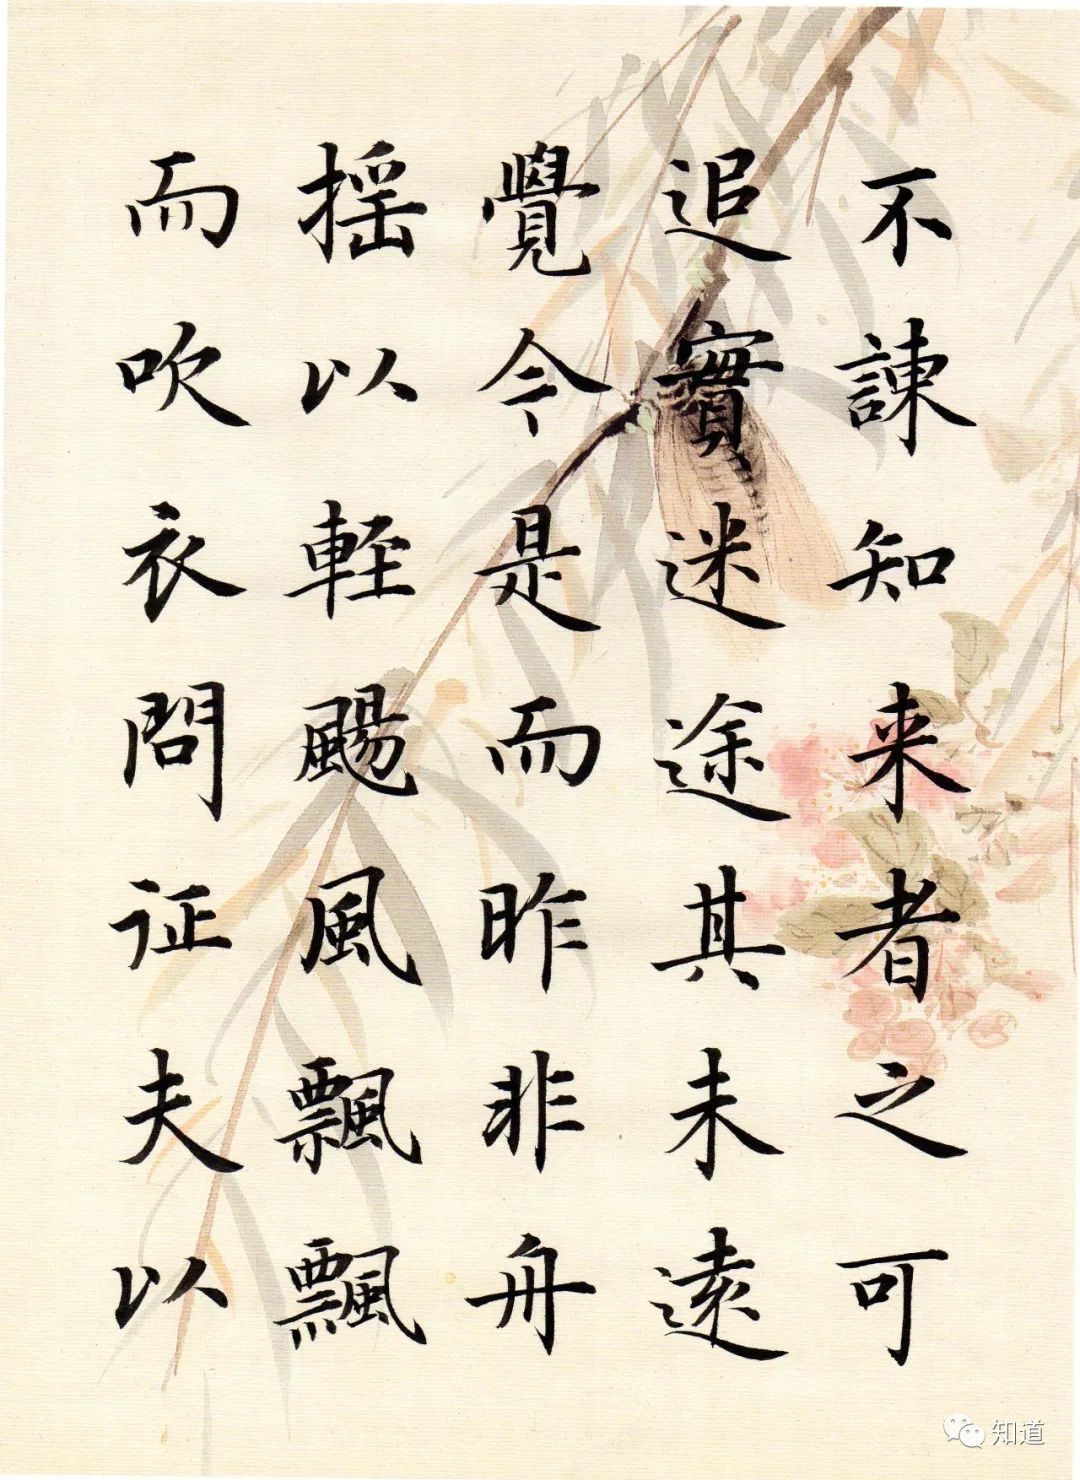 不諫知来者之可
追實迷途其未遠
覺今是而昨非舟
揺以軽颺風飄飄
而吹衣問证夫以
知道